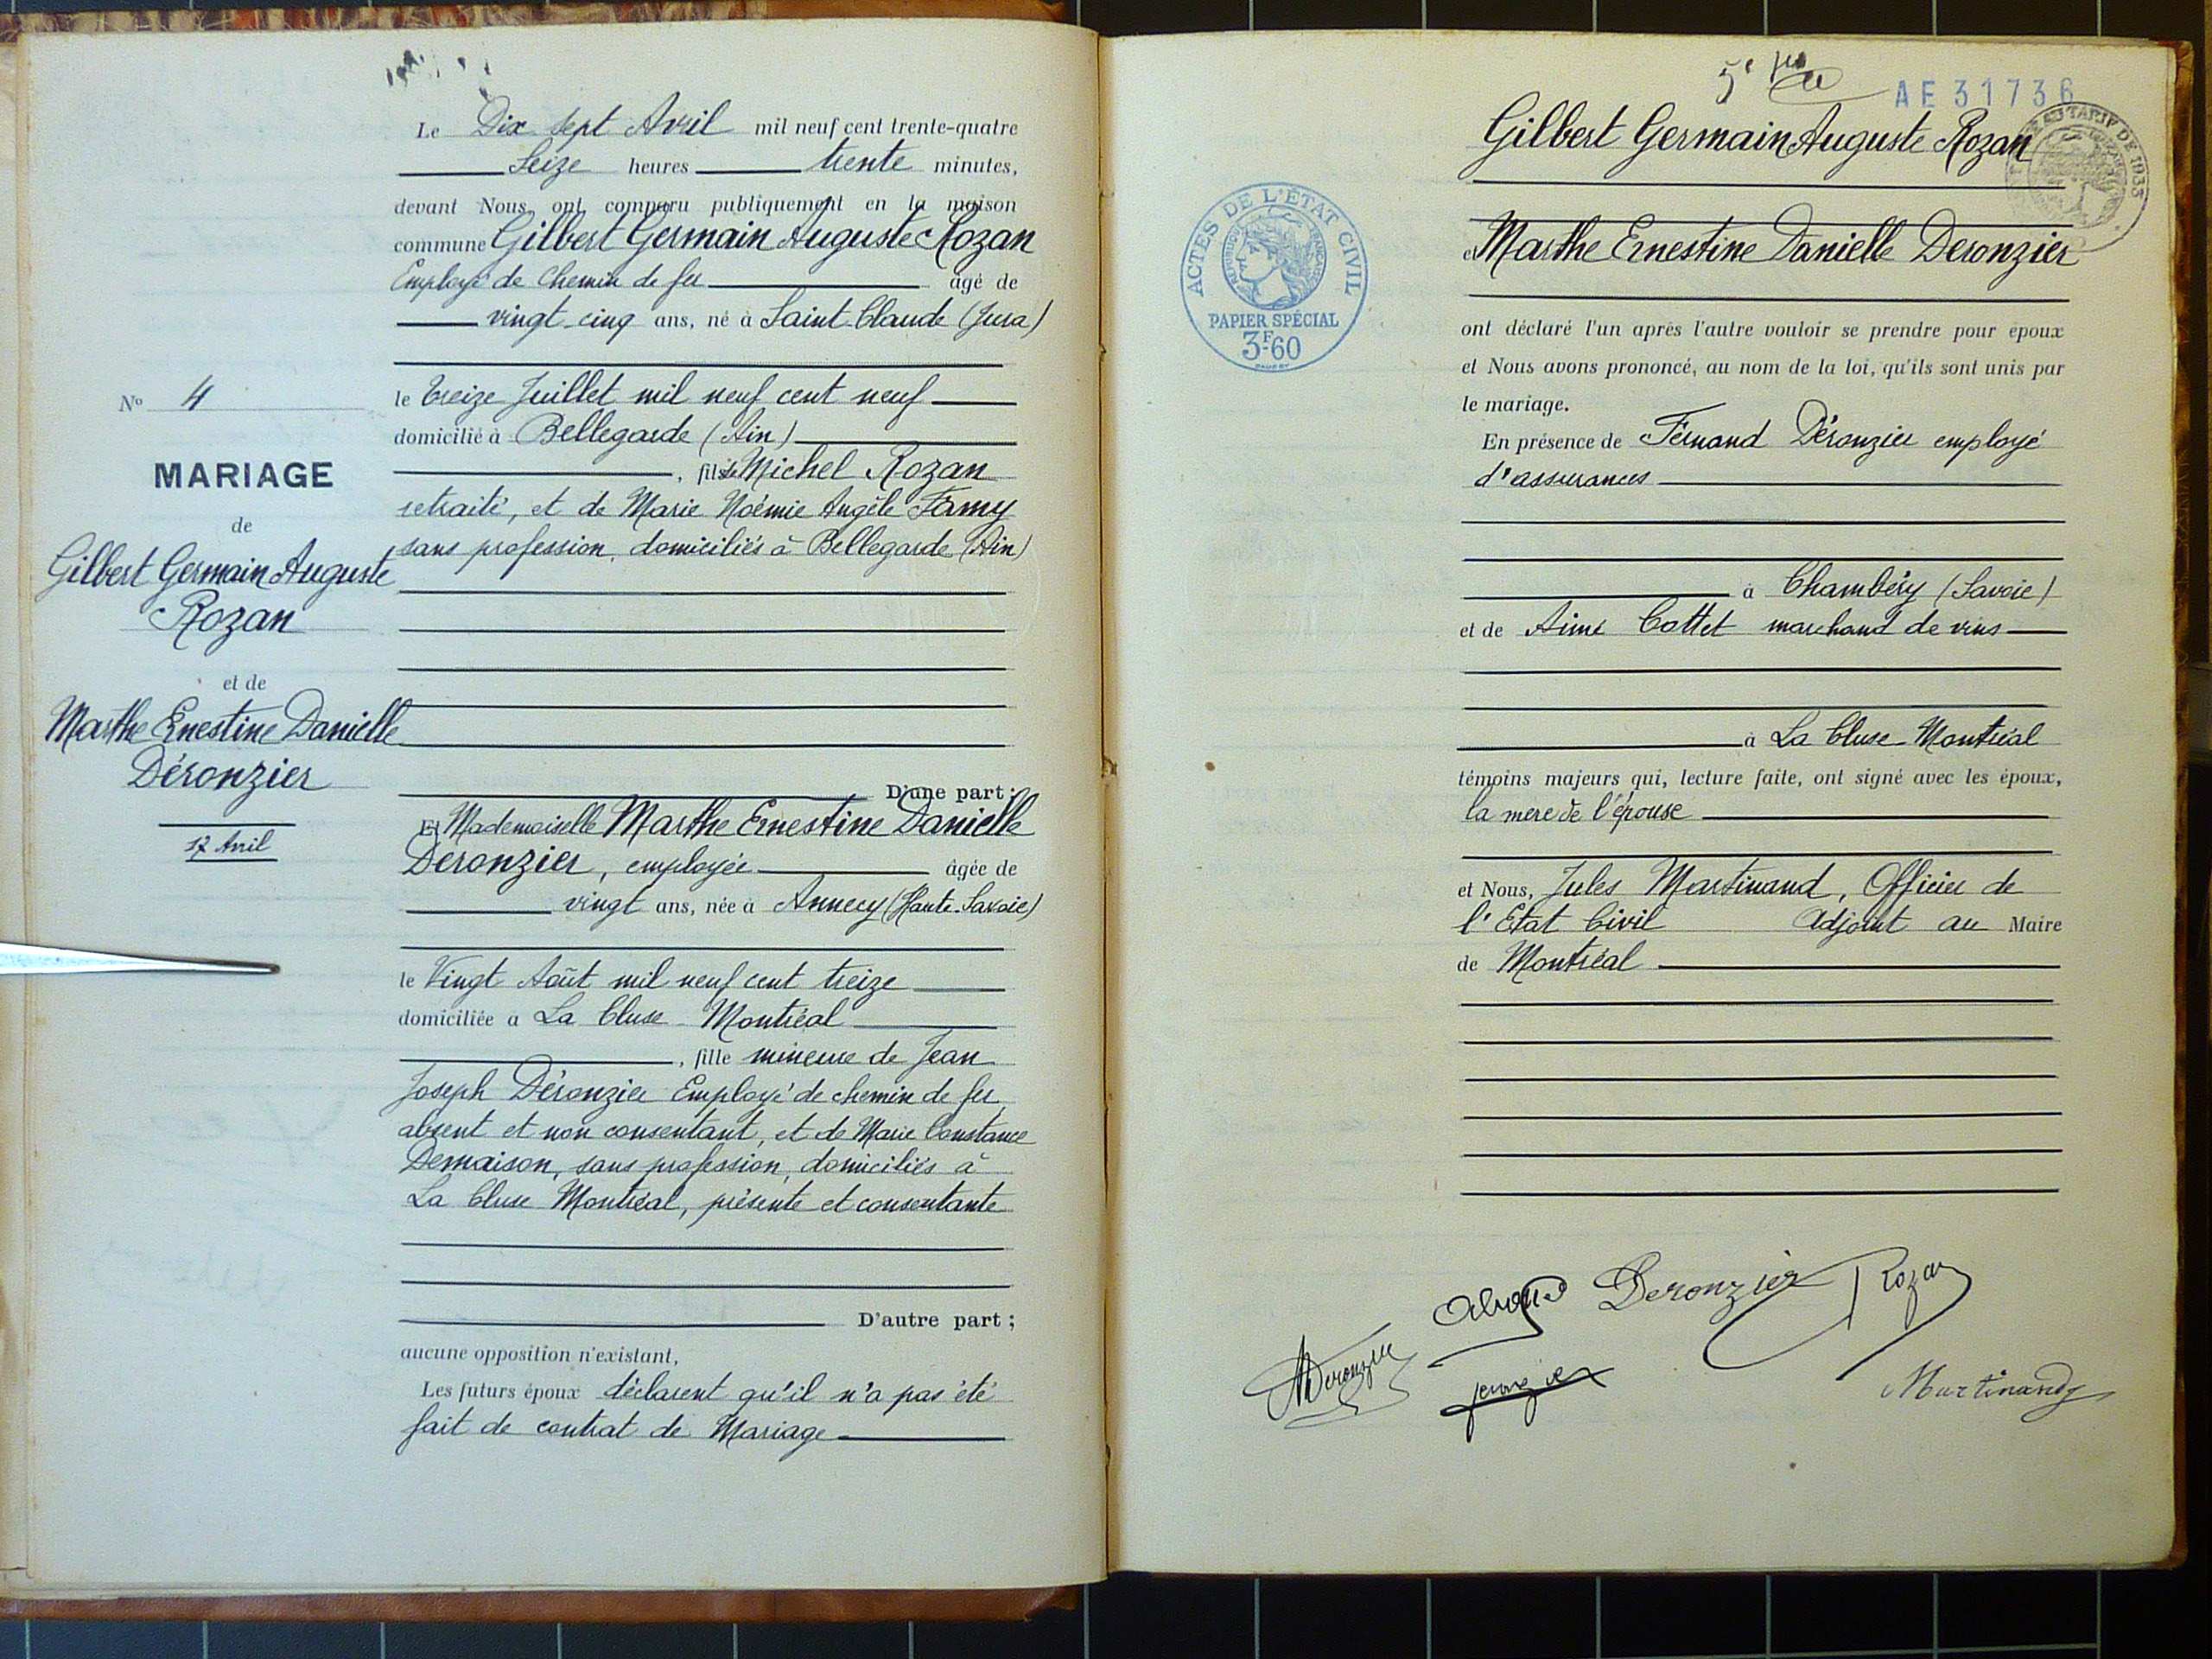 Le Dix Sept Avril mil neuf cent trente-quatre
Seize heures trente minutes,
devant Nous ont comparu publiquement en la maison
commune Gilbert Germain Auguste Rozan
Employé de Chemin de fer âgé de
vingt-cinq ans, né à Saint-Claude (Jura)
le treize Juillet mil neuf cent neuf
domicilié à Bellegarde (Ain)
, fils de Michel Rozan
retraité, et de Marie Noémie Angèle Famy
sans profession, domiciliés à Bellegarde (Ain)
D'une part;
Et Mademoiselle Marthe Ernestine Danielle
Déronzier, employée âgée de
vingt ans, née à Annecy (Haute-Savoie)
le Vingt Août mil neuf cent treize
domiciliée à La Cluse Montréal
, fille mineure de Jean
Joseph Déronzier Employé de chemin de fer,
absent et non consentant, et de Marie Constance
Demaison, sans profession, domiciliés à
La Cluse Montréal, présente et consentante
D'autre part;
aucune opposition n'existant,
Les futurs époux déclarent qu'il n'a pas été
fait de contrat de Mariage
No 4
MARIAGE
de
Gilbert Germain Auguste
Rozan
et de
Marthe Ernestine Danielle
Déronzier
17 Avril
5e
AE 31736
TARIF DE 1933
ACTES DE L'ÉTAT CIVIL
RÉPUBLIQUE FRANÇAISE
PAPIER SPÉCIAL
3F60
Gilbert Germain Auguste Rozan
et Marthe Ernestine Danielle Deronzier
ont déclaré l'un après l'autre vouloir se prendre pour époux
et Nous avons prononcé, au nom de la loi, qu'ils sont unis par
le mariage.
En présence de Fernand Déronzier employé
d'assurances
à Chambéry (Savoie)
et de Aimé Cottet marchand de vins
à La Cluse-Montréal
témoins majeurs qui, lecture faite, ont signé avec les époux,
la mère de l'épouse
et Nous, Jules Martinand, Officier de
l'Etat Civil Adjoint au Maire
de Montréal
Deronzier Rozan
MDeronzier
Martinand